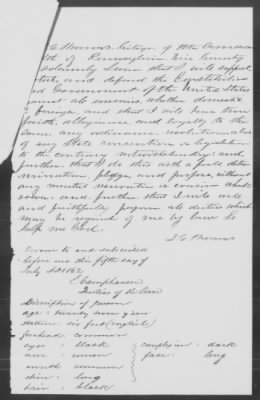 I Thomas
of Pennsylvania Erie County
solemnly swear that I will support
and defend the Constitution
and Government of the United States
against all enemies, whether domestic
or foreign, and that I will bear true
faith, allegiance and loyalty to the
same any ordinance, resolution or law
of any State convention or legislature
to the contrary notwithstanding and
further that I do this with a full deter
mination, pledge, and purpose, without
any mental reservation or evasion what
soever. and further that I will well
and faithfully perform all duties which
may be required of me by law. So
help me God.
Thomas
Sworn to and subscribed
before me this fifth day of
July A.D. 1862
E Camphausen
Justice of the Peace
Discription of person
age :
stature : six feet (english)
forehead common
eyes : black
nose : common
mouth common
chin : long
hair : black
complexion : dark
face : long